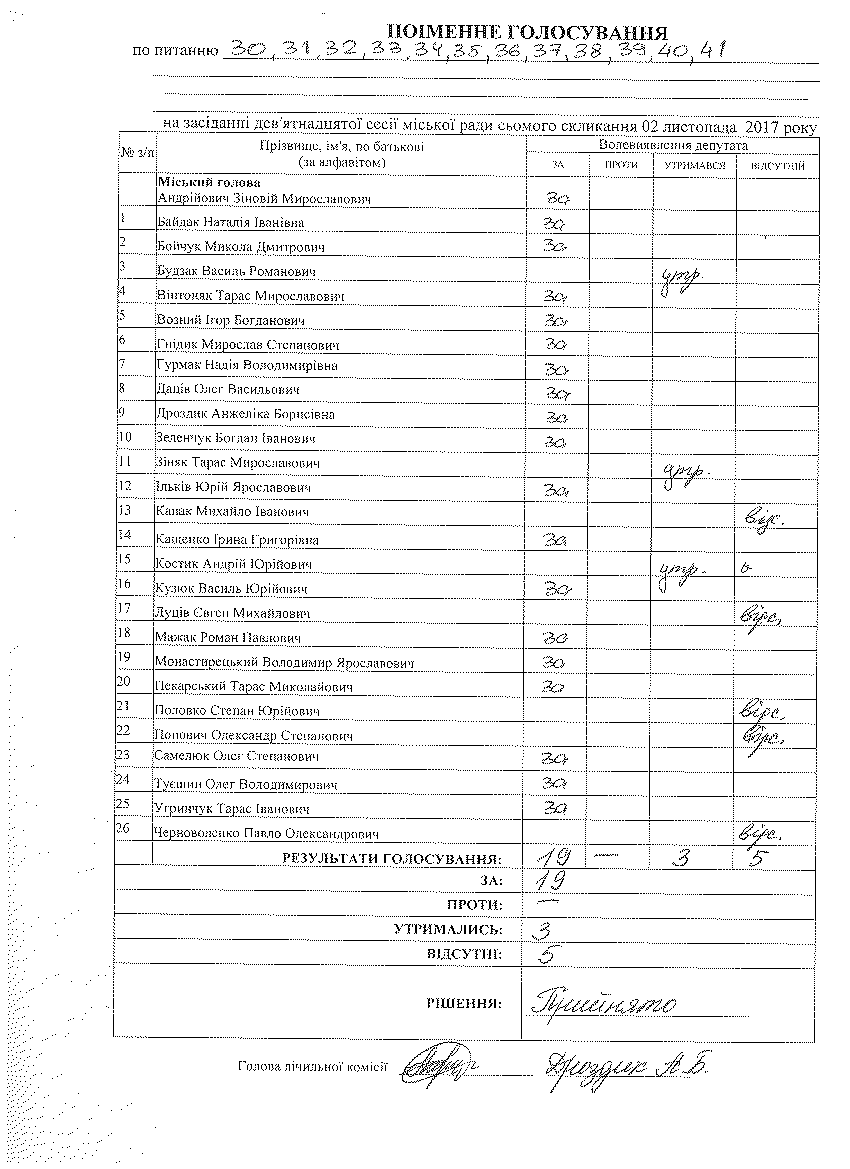 ПОІМЕННЕ ГОЛОСУВАННЯ
по питанню 30, 31, 32, 33, 34, 35, 36, 37, 38, 39, 40, 41
на засіданні дев'ятнадцятої сесії міської ради сьомого скликання 02 листопада 2017 року
№ з/п Прізвище, ім'я, по батькові (за алфавітом) Волевиявлення депутата
ЗА ПРОТИ УТРИМАВСЯ ВІДСУТНІЙ
Міський голова
Андрійович Зіновій Мирославович за
1 Байдак Наталія Іванівна за
2 Бойчук Микола Дмитрович за
3 Будзак Василь Романович утр.
4 Вінтоняк Тарас Мирославович за
5 Возний Ігор Богданович за
6 Гнідик Мирослав Степанович за
7 Гурмак Надія Володимирівна за
8 Даців Олег Васильович за
9 Дроздик Анжеліка Борисівна за
10 Зеленчук Богдан Іванович за
11 Зіняк Тарас Мирославович утр.
12 Ільків Юрій Ярославович за
13 Капак Михайло Іванович відс.
14 Кащенко Ірина Григорівна за
15 Костик Андрій Юрійович утр. в
16 Кузюк Василь Юрійович за
17 Луців Євген Михайлович відс.
18 Мажак Роман Павлович за
19 Монастирецький Володимир Ярославович за
20 Пекарський Тарас Миколайович за
21 Половко Степан Юрійович відс.
22 Попович Олександр Степанович відс.
23 Самелюк Олег Степанович за
24 Туєшин Олег Володимирович за
25 Угринчук Тарас Іванович за
26 Черноволенко Павло Олександрович відс.
РЕЗУЛЬТАТИ ГОЛОСУВАННЯ: 19 — 3 5
ЗА: 19
ПРОТИ: —
УТРИМАЛИСЬ: 3
ВІДСУТНІ: 5
РІШЕННЯ: Прийнято
Голова лічильної комісії Дроздик А.Б.